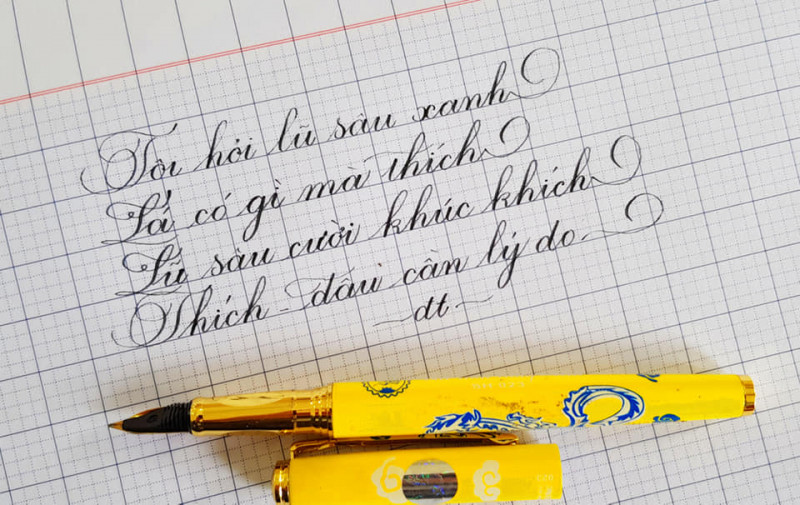 Tôi hỏi lũ sâu xanh
Lá có gì mà thích
Lũ sâu cười khúc khích
Thích - đâu cần lý do.
~ dt ~